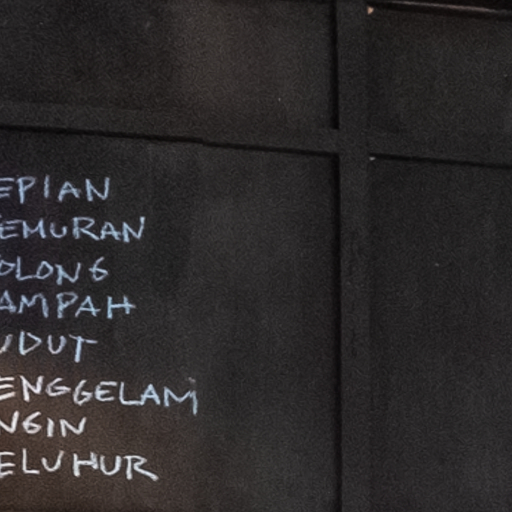 EPIAN
EMURAN
OLONG
AMPAH
UDUT
ENGGELAM
NGIN
ELUHUR